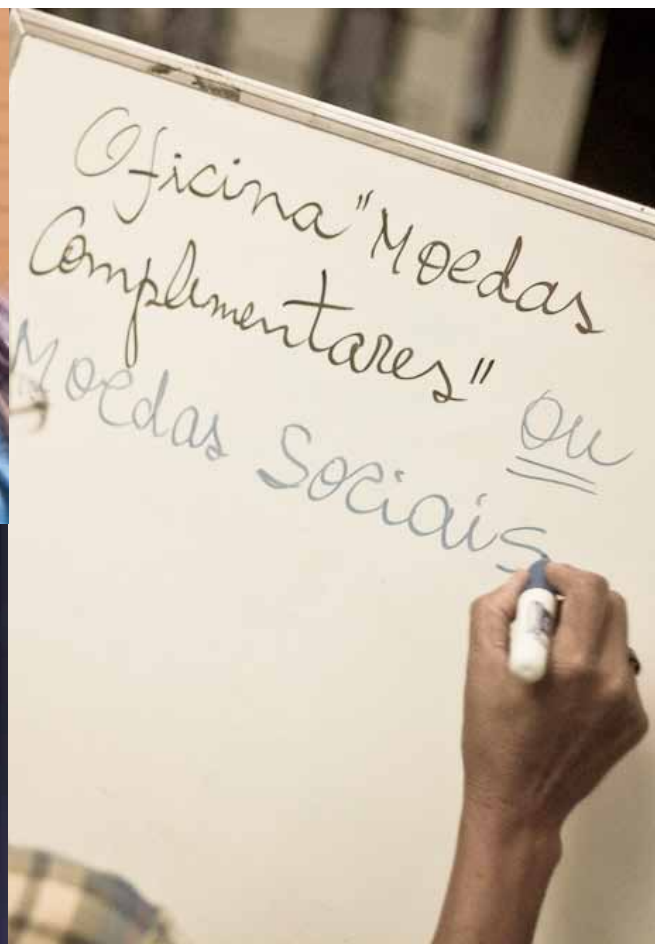 Oficina "Moedas
Complementares" ou
Moedas Sociais